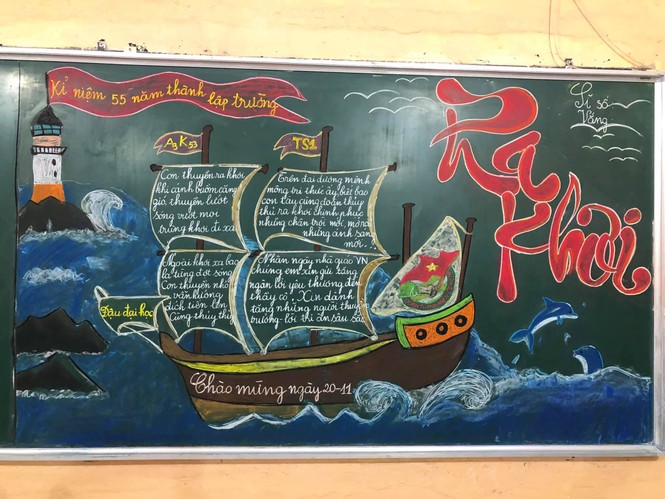 Kỉ niệm 55 năm thành lập trường
Sĩ số
Vắng
Ra
Khơi
A9 K53
TS1
Con thuyền ra khơi
khi cánh buồm căng
gió, thuyền lướt
sóng vượt mọi
trùng khơi đi xa
Trên đại dương mênh
mông tri thức ấy, biết bao
con tàu cùng đoàn thủy
thủ ra khơi chinh phục
những chân trời mới, mong
những ánh sáng
mới...
Ngoài khơi xa bao
la từng đợt sóng
Con thuyền nhỏ
vẫn hướng
đích tiến lên
Cùng thủy thủ
Nhân ngày nhà giáo VN
chúng em xin gửi tặng
ngàn lời yêu thương đến
thầy cô. Xin dành
tặng những người thuyền
trưởng lời tri ân sâu sắc
Đậu đại học
Chào mừng ngày 20-11